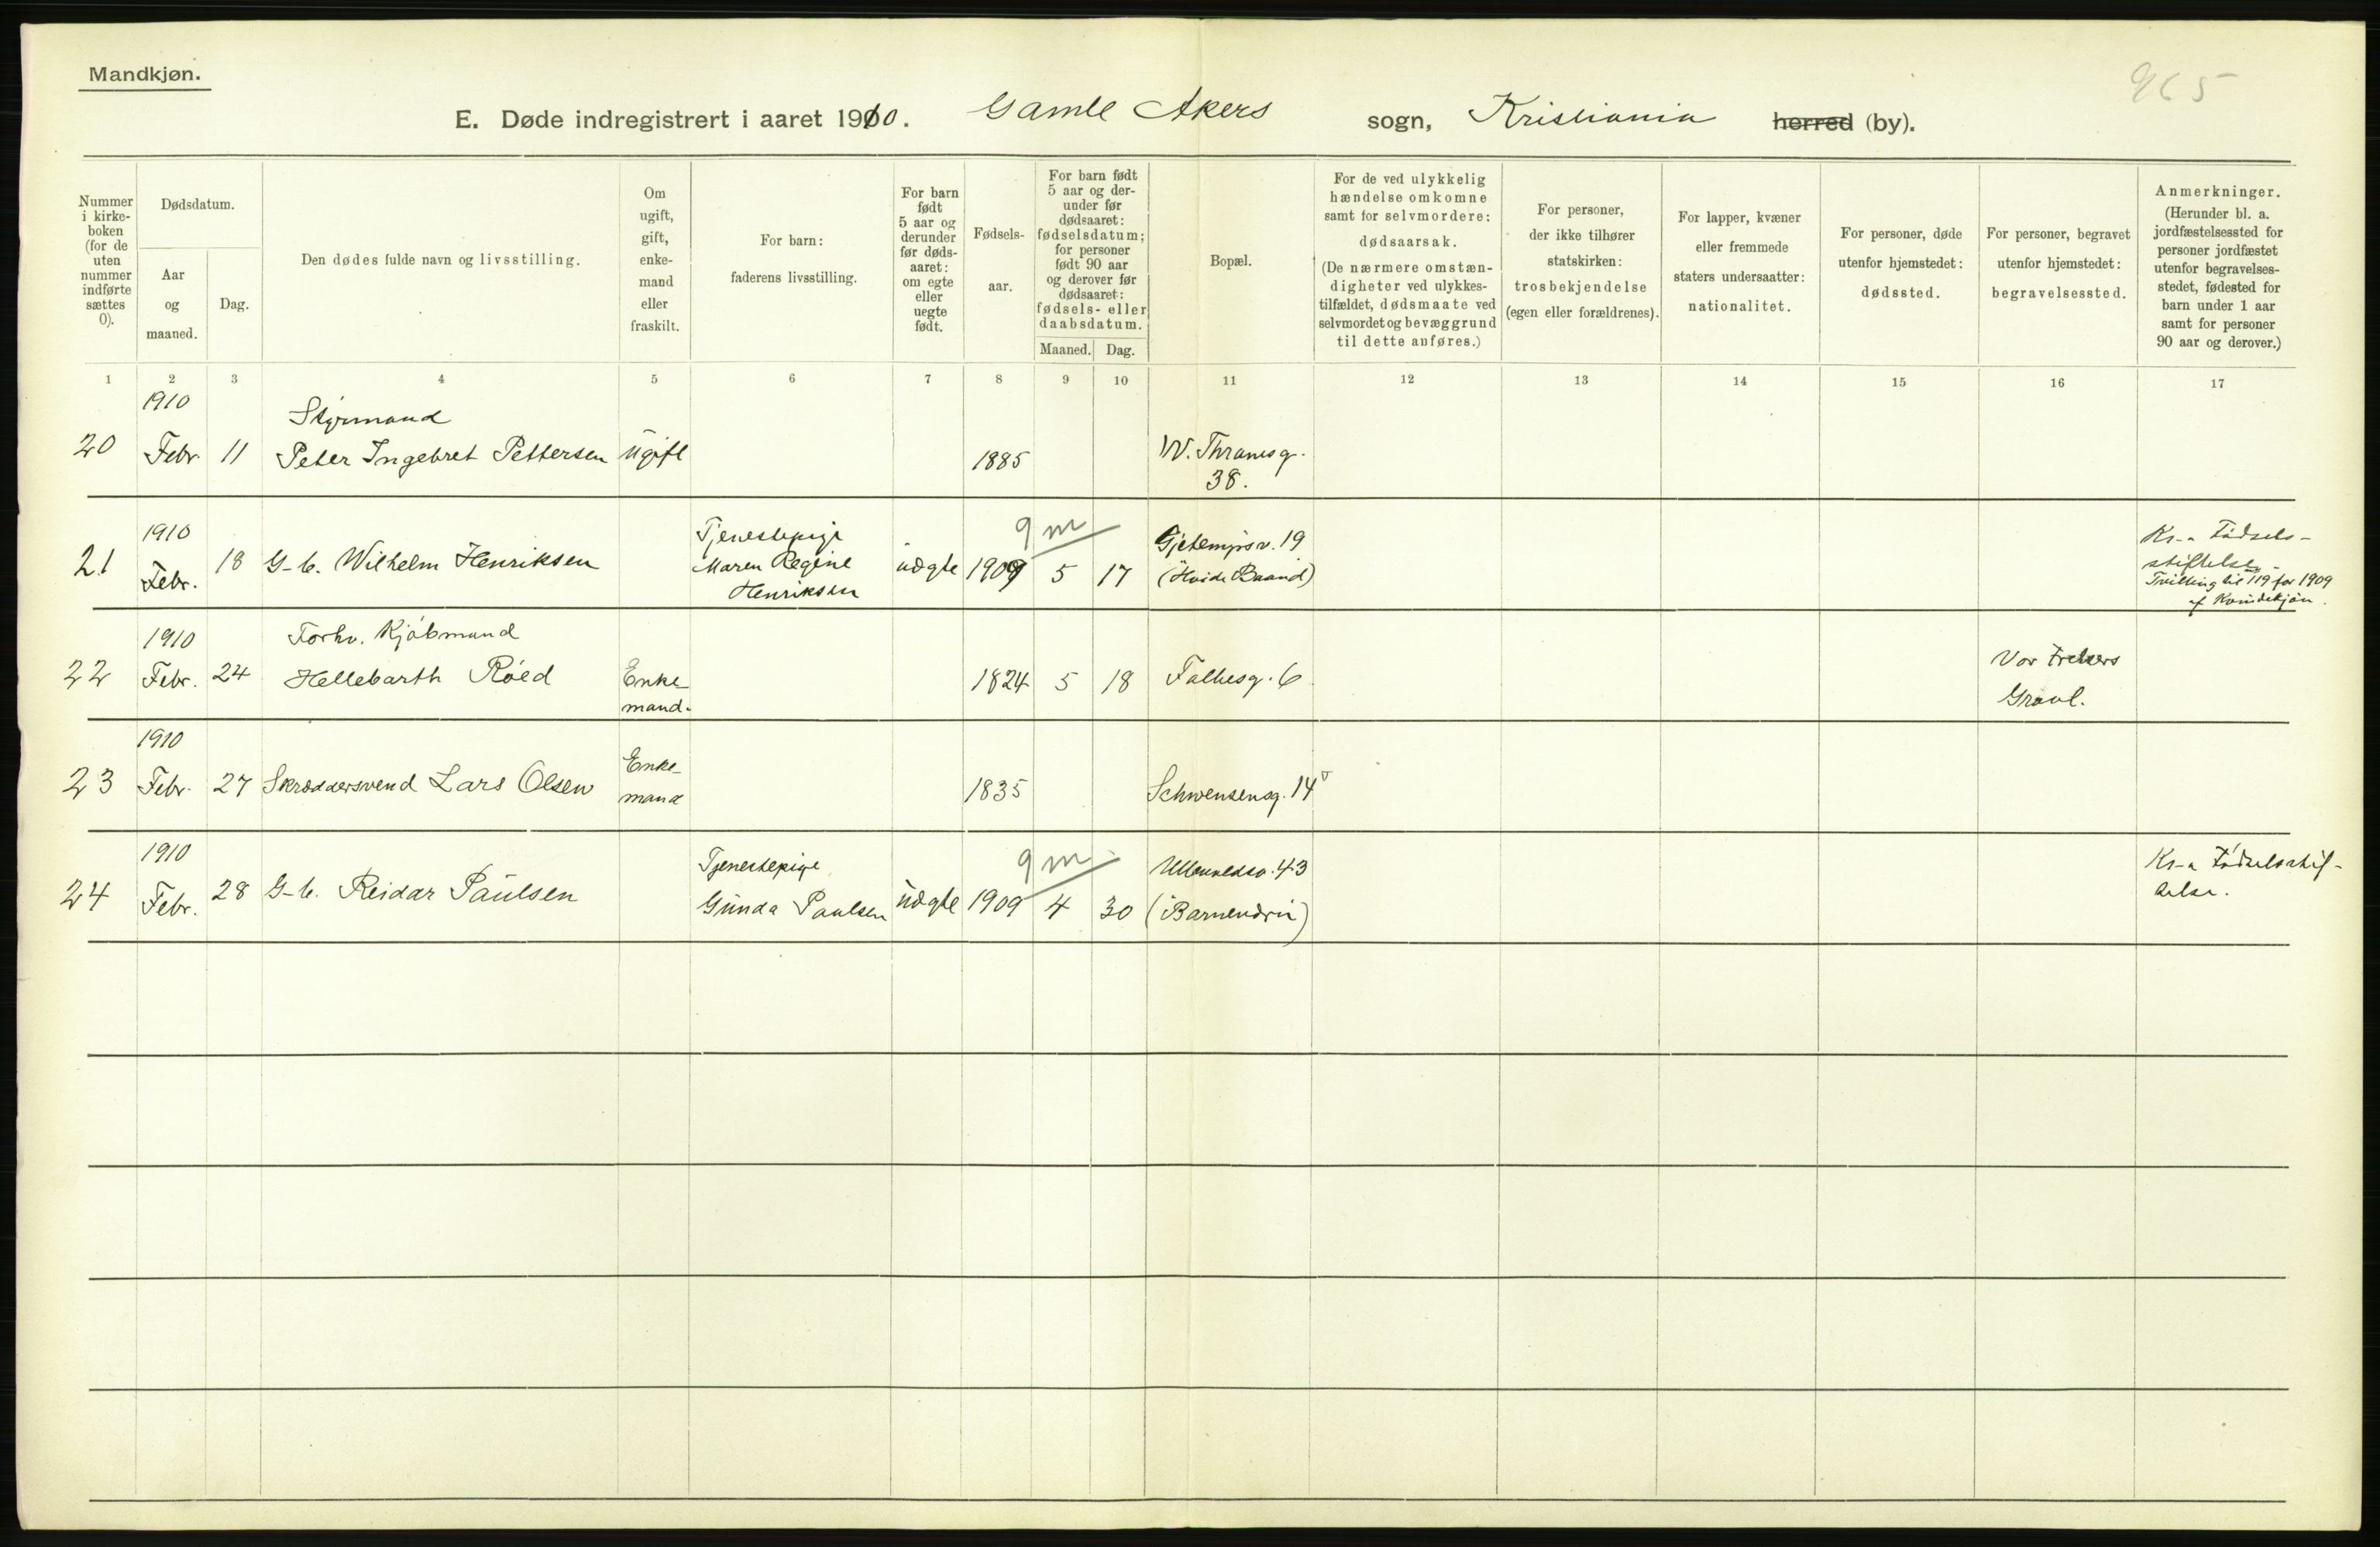 Mandkjøn.
965
E. Døde indregistrert i aaret 1910. Gamle Akers sogn, Kristiania herred (by).
Nummer i kirke- boken (for de uten nummer indførte sættes 0).
Dødsdatum.
Aar og maaned.
Dag.
Den dødes fulde navn og livsstilling.
Om ugift, gift, enke- mand eller fraskilt.
For barn: faderens livsstilling.
For barn født 5 aar og derunder før døds- aaret: om egte eller uegte født.
Fødsels- aar.
For barn født 5 aar og der- under før dødsaaret: fødselsdatum; for personer født 90 aar og derover før dødsaaret: fødsels- eller daabsdatum.
Maaned. Dag.
Bopæl.
For de ved ulykkelig hændelse omkomne samt for selvmordere: dødsaarsak. (De nærmere omstæn- digheter ved ulykkes- tilfældet, dødsmaate ved selvmordet og bevæggrund til dette anføres.)
For personer, der ikke tilhører statskirken: trosbekjendelse (egen eller forældrenes).
For lapper, kvæner eller fremmede staters undersaatter: nationalitet.
For personer, døde utenfor hjemstedet: dødssted.
For personer, begravet utenfor hjemstedet: begravelsessted.
Anmerkninger. (Herunder bl. a. jordfæstelsessted for personer jordfæstet utenfor begravelses- stedet, fødested for barn under 1 aar samt for personer 90 aar og derover.)
1 2 3 4 5 6 7 8 9 10 11 12 13 14 15 16 17
1910 Styrmand
20 Febr. 11 Peter Ingebret Pettersen Ugift 1885 W. Thranesg. 38.
1910 Tjenestepige 9 m Kr-a Fødsels-
21 Febr. 18 G-b. Wilhelm Henriksen Maren Regine Henriksen uægte 1909 5 17 Gjetemyrsv. 19 (Hvide Baand) stiftelse.
Tvilling til 119 for 1909
af Kvindekjøn.
1910 Forhv. Kjøbmand
22 Febr. 24 Hellebarth Röed Enke- mand. 1824 5 18 Falbesg. 6 Vor Frelsers Gravl.
1910
23 Febr. 27 Skræddersvend Lars Olsen Enke- mand 1835 Schwensensg. 14
1910 Tjenestepige 9 m Kr-a Fødselsstif-
24 Febr. 28 G-b. Reidar Paulsen Gunda Paulsen uægte 1909 4 30 Ullevoldsv. 43 (Barnendvir) telse.